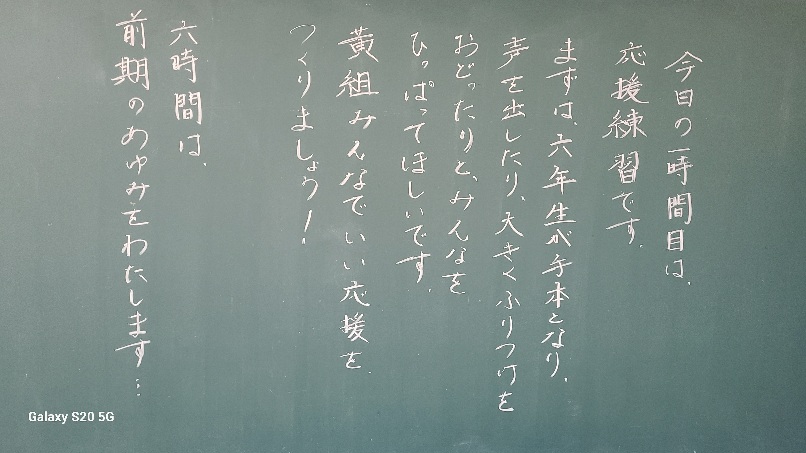 今日の一時間目は、
応援練習です。
まずは、六年生が手本となり、
声を出したり、大きくふりつけを
おどったりと、みんなを
ひっぱってほしいです。
黄組みんなでいい応援を
つくりましょう！
六時間は、
前期のあゆみをわたします…
Galaxy S20 5G